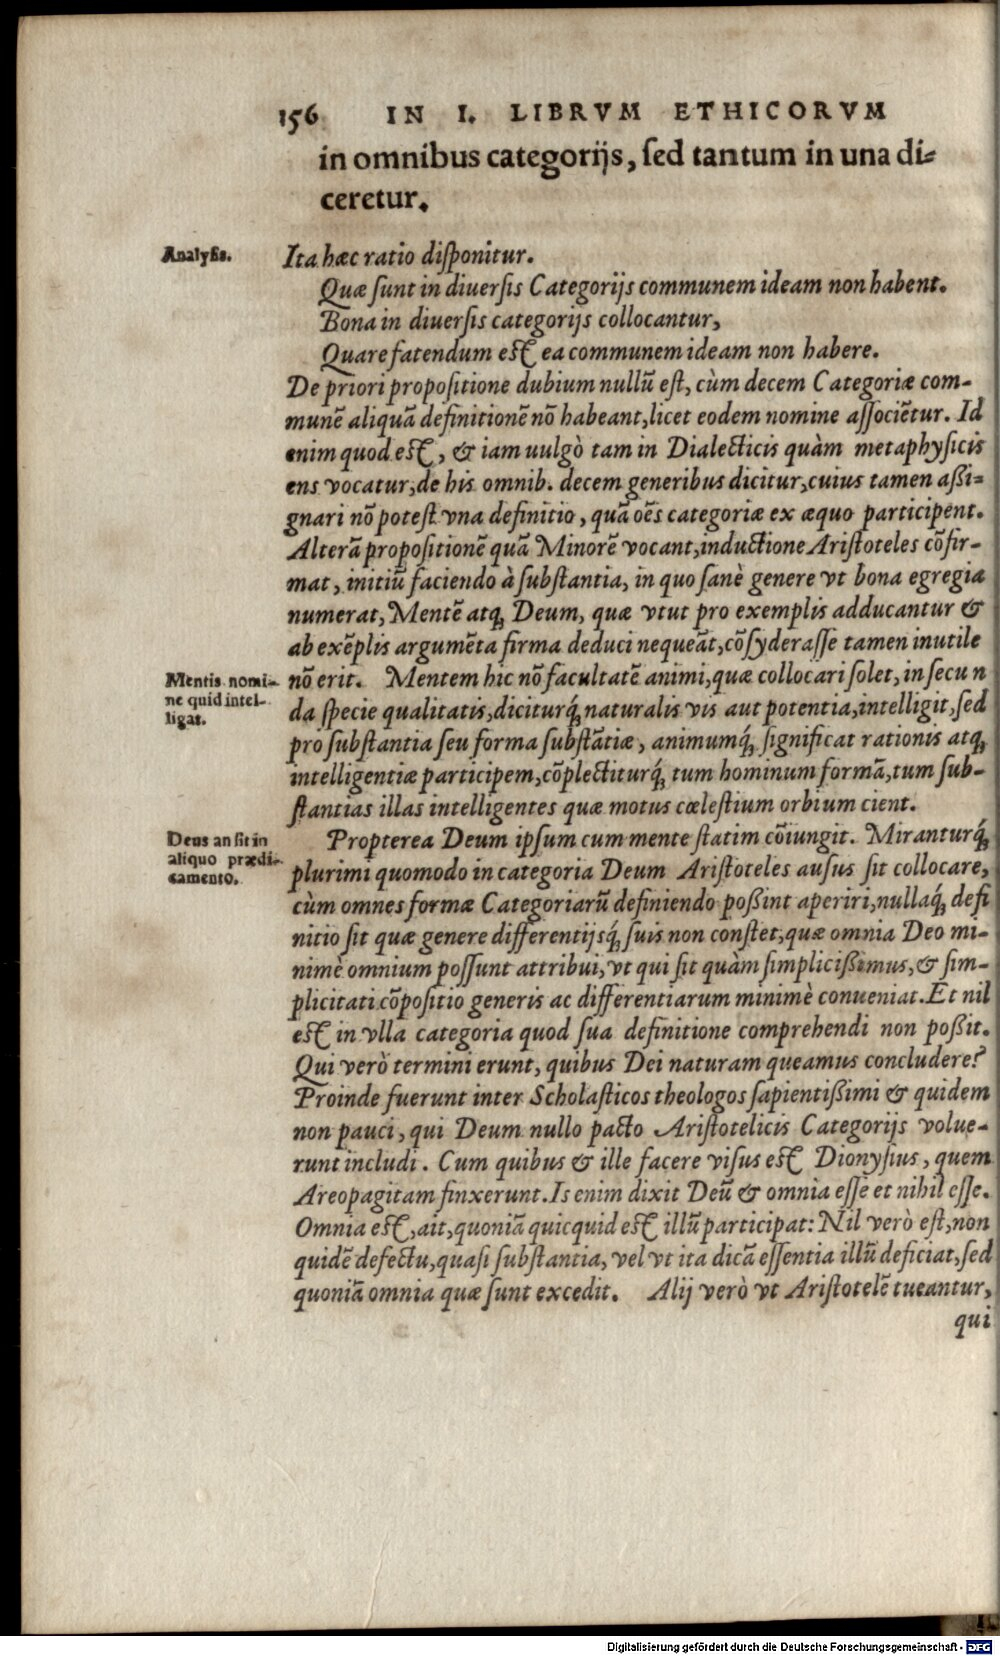 156 IN I. LIBRVM ETHICORVM
in omnibus categorijs, sed tantum in una di=
ceretur.
Analysis.
Ita hæc ratio disponitur.
Quæ sunt in diuersis Categorijs communem ideam non habent.
Bona in diuersis categorijs collocantur,
Quare fatendum est ea communem ideam non habere.
De priori propositione dubium nullũ est, cùm decem Categoriæ com-
munẽ aliquã definitionẽ nõ habeant, licet eodem nomine associẽtur. Id
enim quod est, & iam uulgò tam in Dialecticis quàm metaphysicis
ens vocatur, de his omnib. decem generibus dicitur, cuius tamen aßi=
gnari nõ potest vna definitio, quã oẽs categoriæ ex æquo participent.
Alterã propositionẽ quã Minorẽ vocant, inductione Aristoteles cõfir-
mat, initiũ faciendo à substantia, in quo sanè genere vt bona egregia
numerat, Mentẽ atq; Deum, quæ vtut pro exemplis adducantur &
ab exẽplis argumẽta firma deduci nequeãt, cõsyderasse tamen inutile
Mentis nomi-
ne quid intel-
ligat.
nõ erit. Mentem hic nõ facultatẽ animi, quæ collocari solet, in secun
da specie qualitatis, diciturq́; naturalis vis aut potentia, intelligit, sed
pro substantia seu forma substãtiæ, animumq́; significat rationis atq;
intelligentiæ participem, cõplectiturq́; tum hominum formã, tum sub-
stantias illas intelligentes quæ motus cœlestium orbium cient.
Deus an sit in
aliquo prædi-
camento.
Propterea Deum ipsum cum mente statim cõiungit. Miranturq́;
plurimi quomodo in categoria Deum Aristoteles ausus sit collocare,
cùm omnes formæ Categoriarũ definiendo poßint aperiri, nullaq́; defi
nitio sit quæ genere differentijsq́; suis non constet, quæ omnia Deo mi-
nimè omnium possunt attribui, vt qui sit quàm simplicißimus, & sim-
plicitati cõpositio generis ac differentiarum minimè conueniat. Et nil
est in vlla categoria quod sua definitione comprehendi non poßit.
Qui verò termini erunt, quibus Dei naturam queamus concludere?
Proinde fuerunt inter Scholasticos theologos sapientißimi & quidem
non pauci, qui Deum nullo pacto Aristotelicis Categorijs volue-
runt includi. Cum quibus & ille facere visus est Dionysius, quem
Areopagitam finxerunt. Is enim dixit Deũ & omnia esse et nihil esse.
Omnia est, ait, quoniã quicquid est illũ participat: Nil verò est, non
quidẽ defectu, quasi substantia, vel vt ita dicã essentia illũ deficiat, sed
quoniã omnia quæ sunt excedit. Alij verò vt Aristotelẽ tueantur,
qui
Digitalisierung gefördert durch die Deutsche Forschungsgemeinschaft - DFG